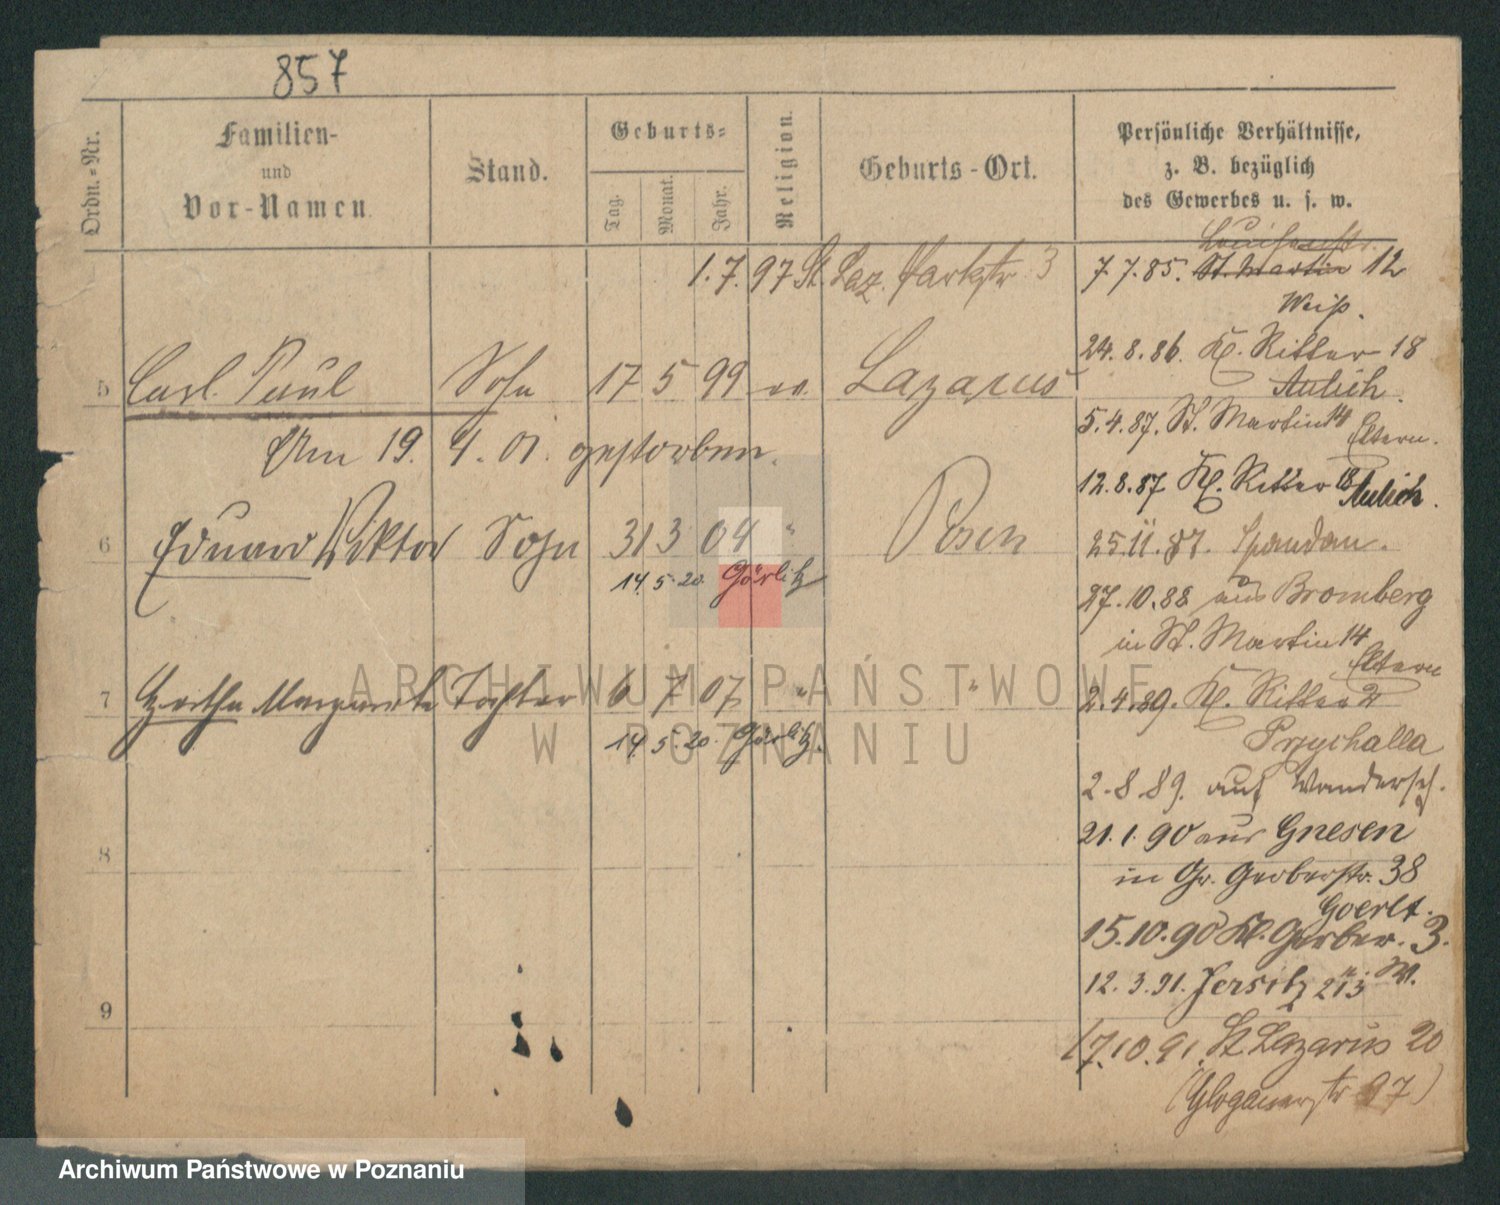 857
Ordn.-Nr.
Familien-
und
Vor-Namen.
Stand.
Geburts-
Tag.
Monat.
Jahr.
Religion.
Geburts-Ort.
Persönliche Verhältnisse,
z. B. bezüglich
des Gewerbes u. s. w.
1.7.97 St. Laz. Parkstr 3
Louisenstr.
7.7.85. St. Martin 12
Weiß.
24.8.86. Kl. Ritter 18
Aulich.
5 Carl Paul Sohn 17 5 99 Lazarus
5.4.87. St. Martin 14
Eltern.
Am 19. 4. 01. gestorben.
12.8.87 Kl. Ritter 18
Aulich.
6 Eduard Viktor Sohn 31 3 04 " Posen
25.11.87. Spandau.
14. 5. 20. Görlitz
27.10.88 aus Bromberg
in St. Martin 14
Eltern
7 Hertha Margarete Tochter 6 7 07 " "
2.4.89. Kl. Ritter 2
Przychalla
14. 5. 20. Görlitz.
2.8.89. auf Wandersch.
21.1.90 aus Gnesen
8
in Gr. Gerberstr. 38
Goerlt.
15.10.90 Kl. Gerber. 3.
12.3.91. Jersitz 213 W.
9
17.10.91. St Lazarus 20
(Glogauerstr 97)
ARCHIWUM PAŃSTWOWE
W POZNANIU
Archiwum Państwowe w Poznaniu